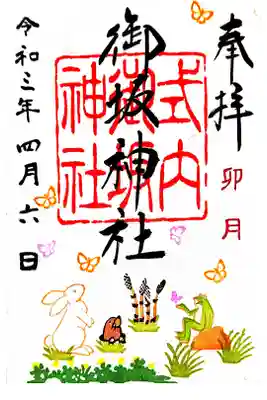 奉拝
卯月
御坂神社
式内
御坂
神社
令和三年四月六日